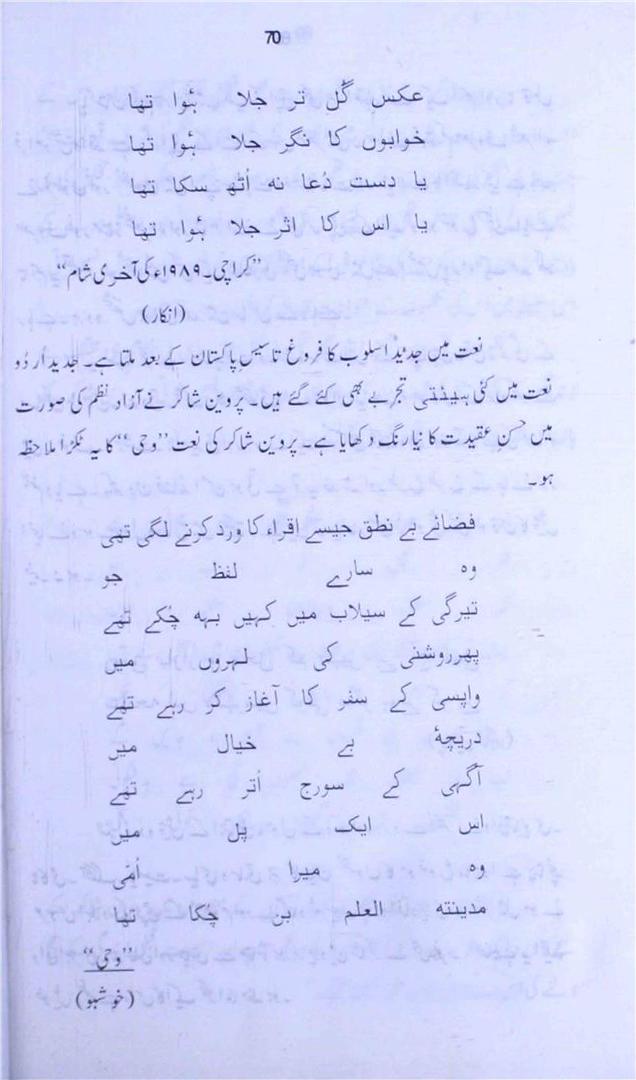 70
عکس گُل تر جلا ہُوا تھا
خوابوں کا نگر جلا ہُوا تھا
یا دست دُعا نہ اُٹھ سکا تھا
یا اس کا اثر جلا ہُوا تھا
"کراچی۔ ۱۹۸۹ء کی آخری شام"
(انکار)
نعت میں جدید اسلوب کا فروغ تاسیس پاکستان کے بعد ملتا ہے۔ جدید اُردو
نعت میں کئی ہیئتی تجربے بھی کئے گئے ہیں۔ پروین شاکر نے آزاد نظم کی صورت
میں حسنِ عقیدت کا نیا رنگ دکھایا ہے۔ پروین شاکر کی نعت "وحی" کا یہ ٹکڑا ملاحظہ
ہو۔
فضائے بے نطق جیسے اقراء کا ورد کرنے لگی تھی
وہ سارے لفظ جو
تیرگی کے سیلاب میں کہیں بہہ چُکے تھے
پھر روشنی کی لہروں میں
واپسی کے سفر کا آغاز کر رہے تھے
دریچۂ بے خیال میں
آگہی کے سورج اُتر رہے تھے
اس ایک پل میں
وہ میرا اُمّی
مدینتہ العلم بن چکا تھا
"وحی"
(خوشبو)